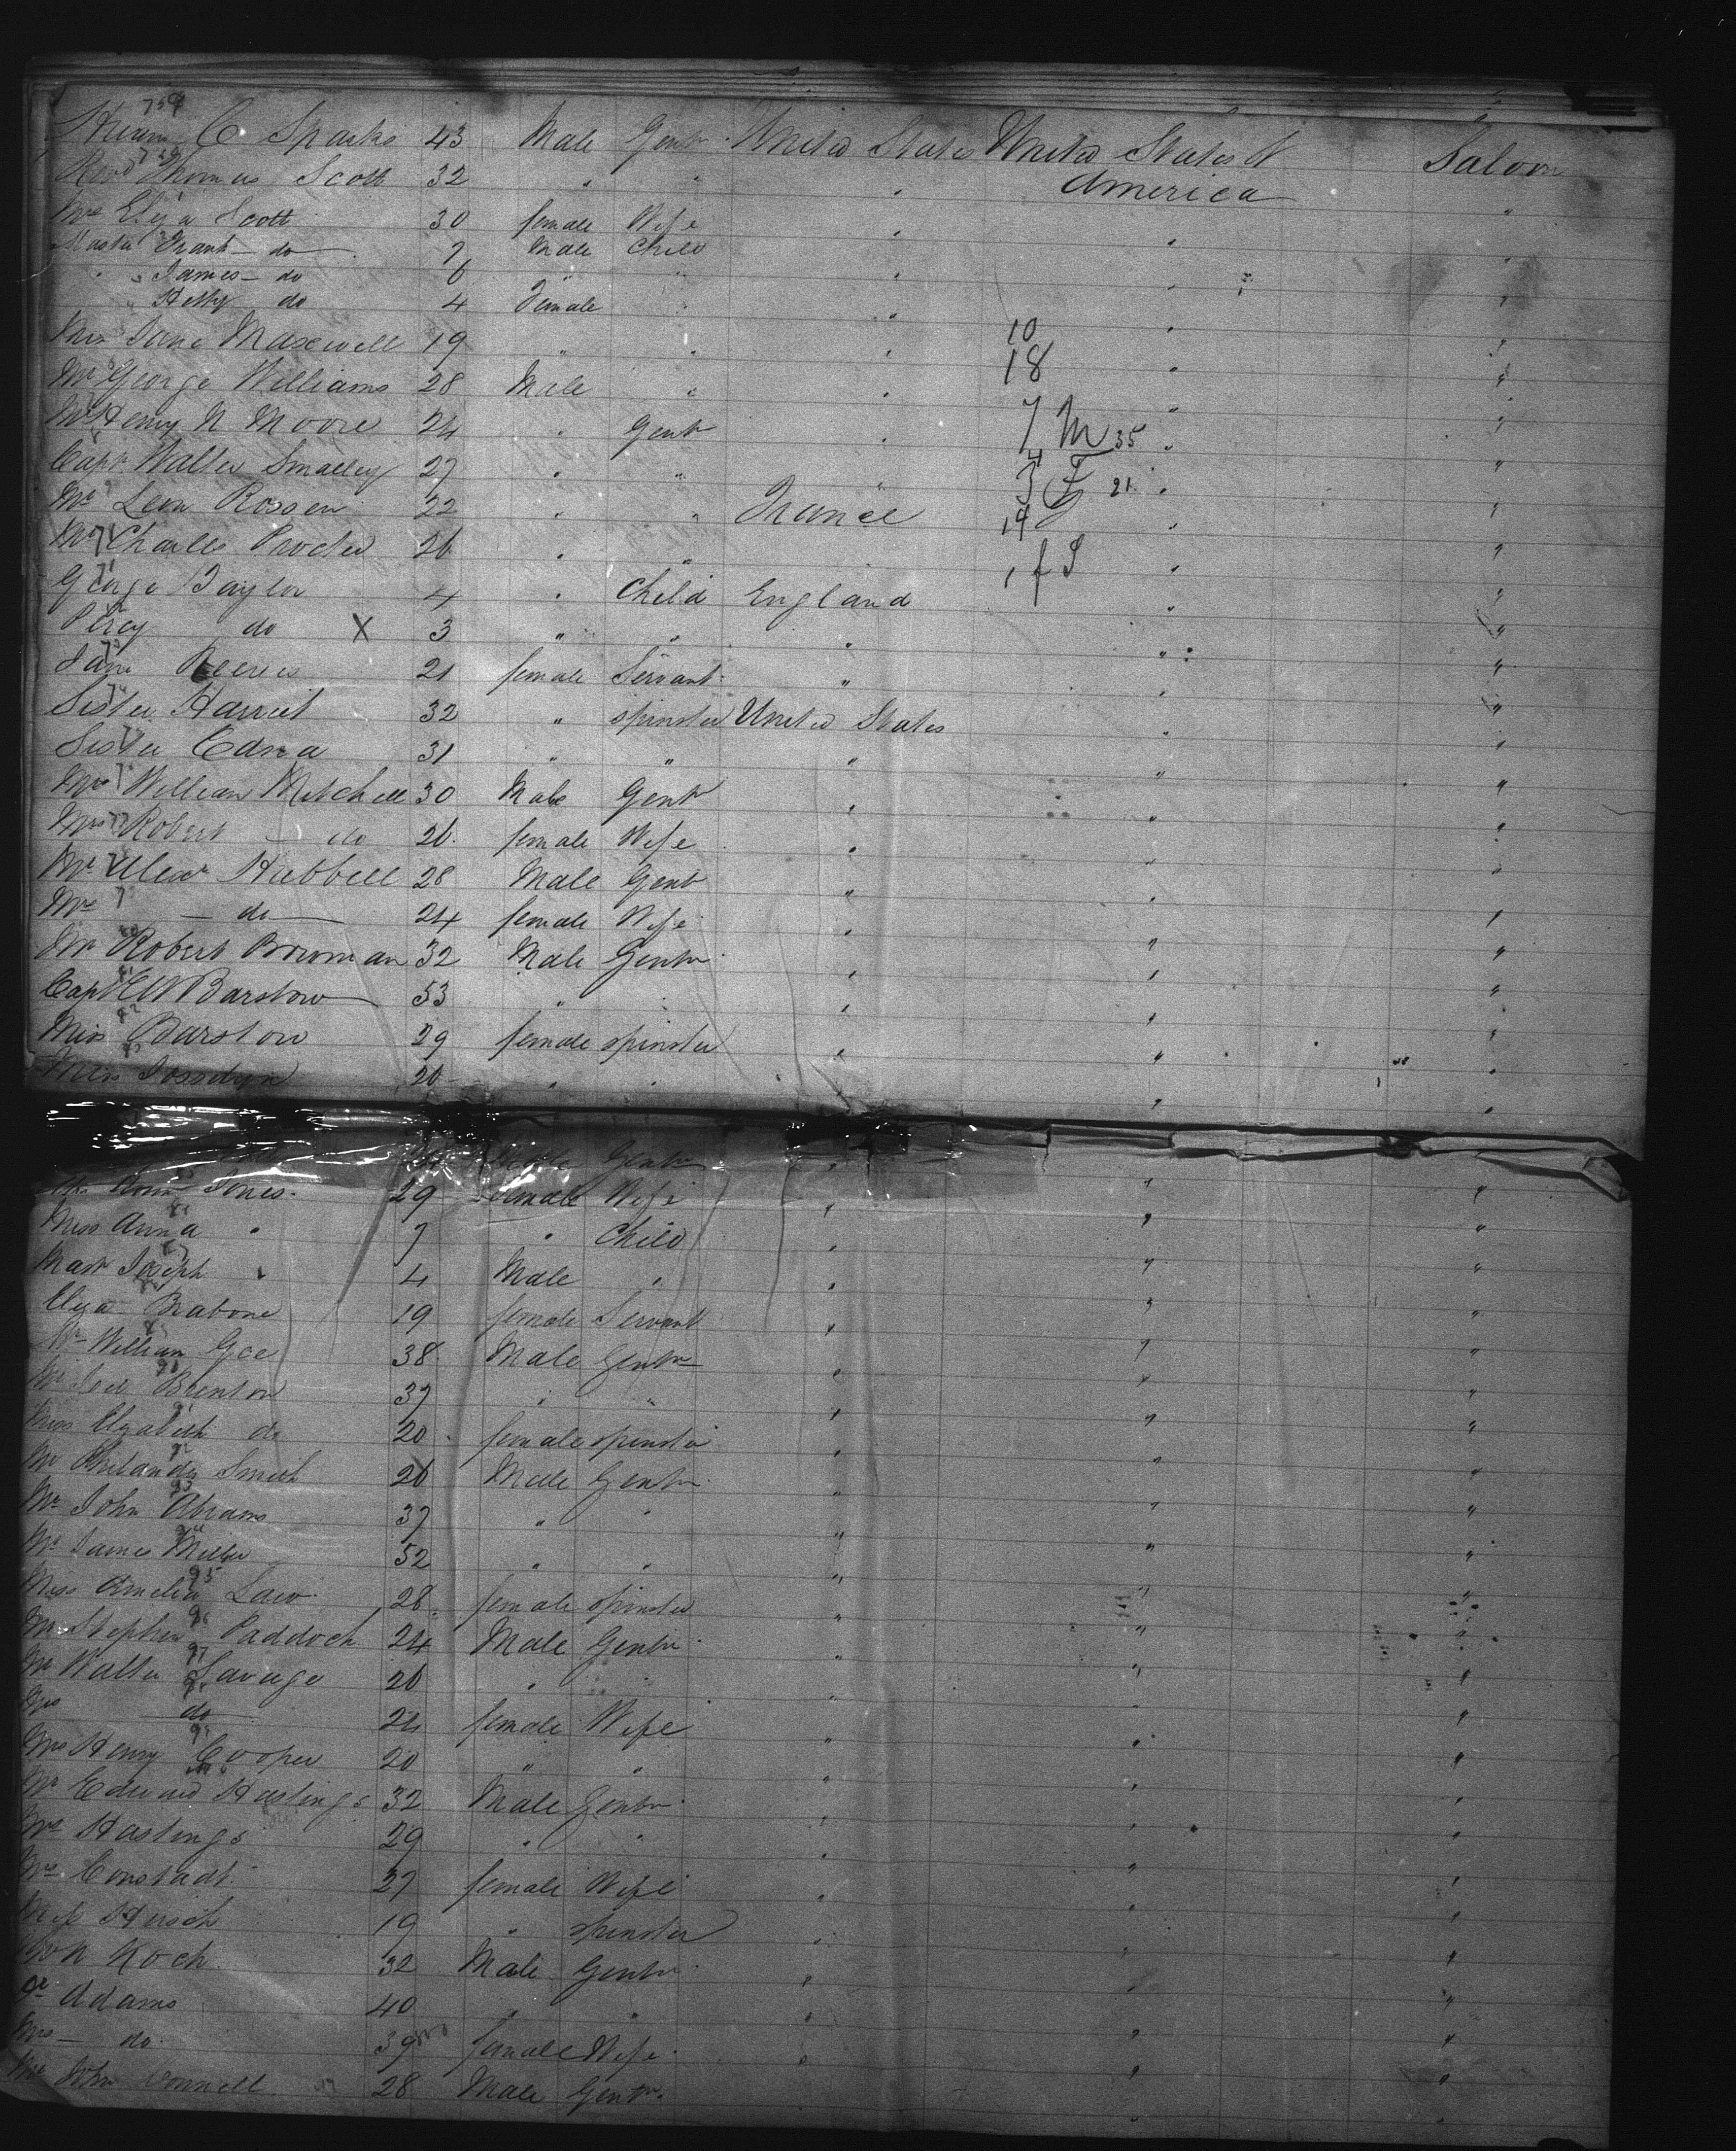 759
Hiram C Sparks 43 Male Gentn United States United States N Saloon
Revd Thomas Scott 32 " " " America
Mrs Eliza Scott 30 female Wife " " "
Master Frank do 7 Male Child " "
" James do 6 " " " " "
" Hetty do 4 Female " " " "
Miss Jane Maxwell 19 " " " 10 " "
Mr George Williams 28 Male " " 18 " "
Mr Henry N Moore 24 " Gentn " 7 M 35 " "
Capt Walter Smalley 27 " " " 3 F 21 " "
Mr Leon Rossen 22 " " France 19 " "
Mr Charles Procter 26 " " 1 f S " "
George Taylor 4 " Child England " "
Percy do X 3 " " " " "
Jane Reeves 21 female Servant " " "
Sister Harriet 32 " spinster United States " "
Sister Edna 31 " " " " "
Mr William Mitchell 30 Male Gentn " " "
Mrs Robert do 26 female Wife " " "
Mr Alexr Hubbell 28 Male Gentn " " "
Mrs do 24 female Wife " " "
Mr Robert Bowman 32 Male Gentn " " "
Capt Barstow 53 " " " " "
Miss Barstow 29 female spinster " " "
Miss Josselyn 20 " " " " "
Male Gentn " " "
Jones 29 Female Wife " " "
Miss Anna " 7 " Child " " "
Mastr Joseph " 4 Male " " " "
Eliza Brabone 19 female Servant " " "
Mr William Gee 38 Male Gentn " " "
Mr Joel Brenton 37 " " " " "
Miss Elizabeth do 20 female spinster " " "
92
Mr Philander Smith 26 Male Gentn " " "
93
Mr John Abrams 37 " " " " "
94
Mr James Miller 52 " " " " "
95
Miss Amelia Law 28 female spinster " " "
96
Mr Stephen Paddock 24 Male Gentn " " "
97
Mr Walter Savage 26 " " " " "
Mrs do 24 female Wife " " "
Mrs Henry Cooper 20 " " " " "
Mr Edward Hastings 32 Male Gentn " " "
Mrs Hastings 29 " " " " "
Mrs Constadt 27 female Wife " " "
Miss Hirsch 19 " spinster " " "
Koch 32 Male Gentn " " "
Adams 40 " " " " "
Mrs do 39 female Wife " " "
Mr John Connell 28 Male Gentn " "